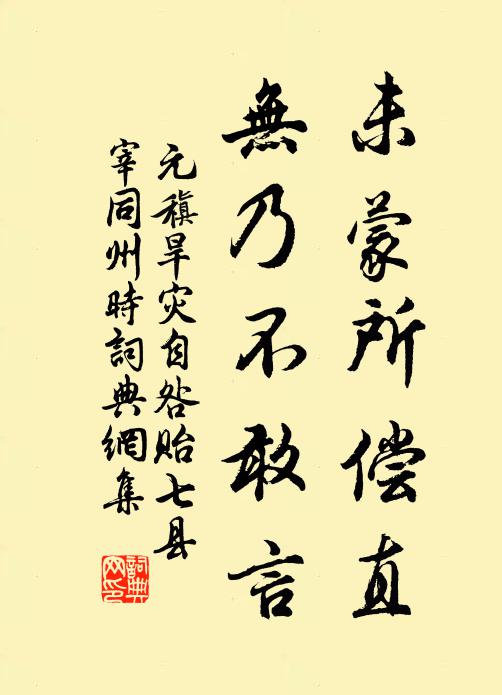 未蒙所偿直
無乃不敢言
元稹旱灾自咎贻七县
宰同州時詞典網集
詞典网印